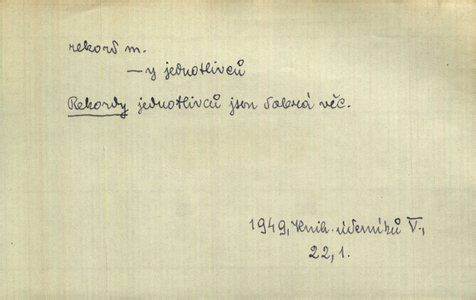 rekord m.
—y jednotlivců
Rekordy jednotlivců jsou dobrá věc.
1949, Knih. úderníků V.,
22, 1.